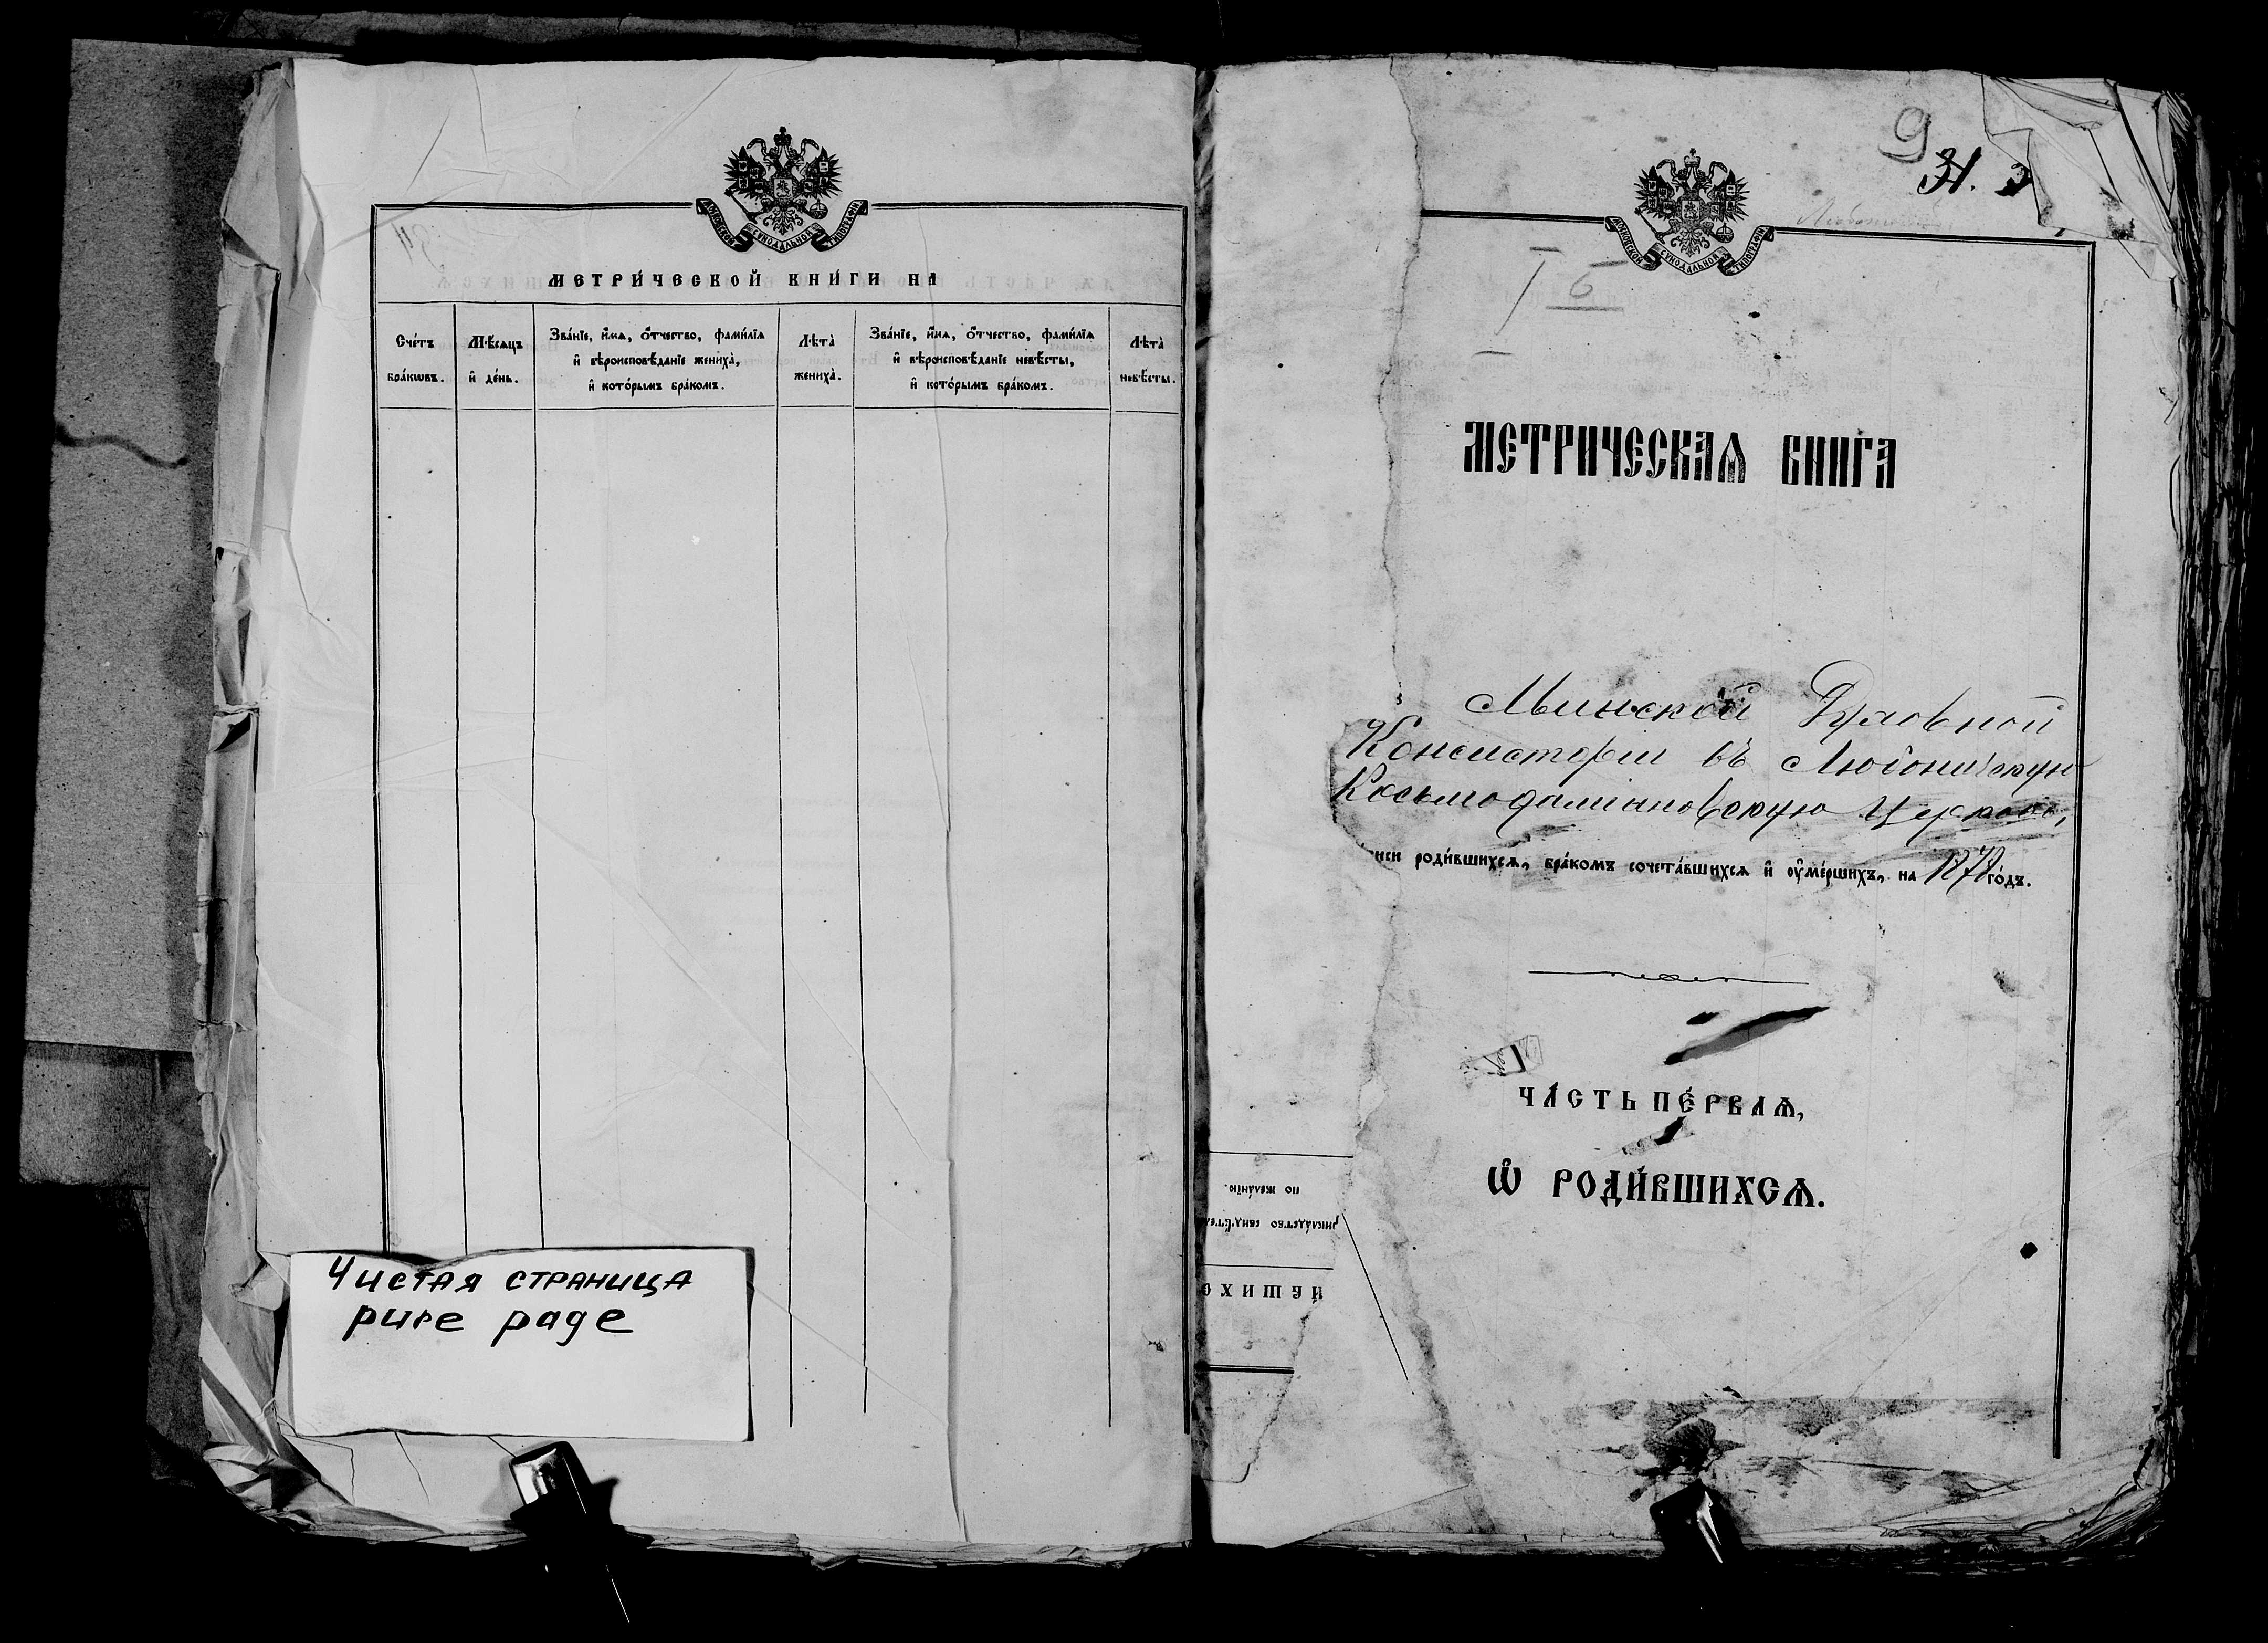 МОСКОВСКОЙ СѴНОДАЛЬНОЙ ТИПОГРАФІИ
МЕТРИ́ЧЕСКОЙ КНИ́ГИ НА
Сче́тъ бра́кѡвъ.
Мѣ́сѧцъ и҆ де́нь.
Зва́нїе, и҆́мѧ, ѻ҆́тчество, фами́лїѧ
и҆ вѣроисповѣ́данїе жениха̀,
и҆ кото́рымъ бра́комъ.
Лѣ́та̀ жениха̀.
Зва́нїе, и҆́мѧ, ѻ҆́тчество, фами́лїѧ
и҆ вѣроисповѣ́данїе невѣ́сты,
и҆ кото́рымъ бра́комъ.
Лѣ́та̀ невѣ́сты.
Чистая страница
pure page
9
31.
МОСКОВСКОЙ СѴНОДАЛЬНОЙ ТИПОГРАФІИ
6
МЕТРИЧЕСКАѦ КНИГА
Минской Духовной
Консисторіи въ Любоничскую
Косьмодаміановскую Церковь,
писи роди́вшихсѧ, бра́комъ сочета́вшихсѧ и҆ ᲂу҆ме́ршихъ, на 1878 го́дъ.
ЧА́СТЬ ПЕ́РВАѦ,
Ѡ҆ РОДИ́ВШИХСѦ.
по жела́нїю.